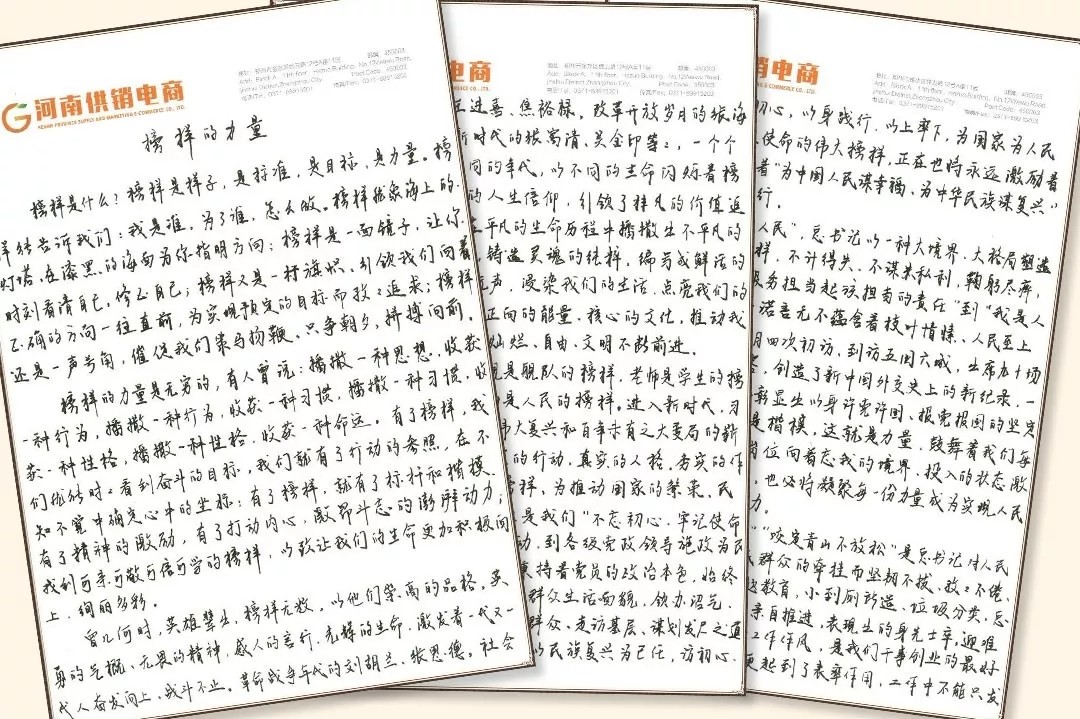 河南供销电商
HENAN PROVINCE SUPPLY AND MARKETING E-COMMERCE CO., LTD.
榜样的力量
榜样是什么？榜样是样子，是标准，是目标，是力量。榜
样能告诉我们：我是谁，为了谁，怎么做。榜样就象海上的
灯塔，在漆黑的海面为你指明方向；榜样是一面镜子，让你
时刻看清自己，修正自己；榜样又是一杆旗帜，引领我们向着
正确的方向一往直前，为实现预定的目标而孜孜追求；榜样
还是一声号角，催促我们策马扬鞭、只争朝夕、拼搏向前。
榜样的力量是无穷的，有人曾说：播撒一种思想，收获
一种行为，播撒一种行为，收获一种习惯，播撒一种习惯，收
获一种性格，播撒一种性格，收获一种命运。有了榜样，我
们就能时时看到奋斗的目标，我们就有了行动的参照，在不
知不觉中确定心中的坐标；有了榜样，就有了标杆和楷模，
有了精神的激励，有了打动内心，激昂斗志的澎湃动力；
找到可亲可敬可信可学的榜样，以致让我们的生命更加积极向
上、绚丽多彩。
曾几何时，英雄辈出，榜样无数，以他们崇高的品格、英
勇的气概、无畏的精神、感人的言行、光辉的生命，激发着一代又一
代人奋发向上、战斗不止。革命战争年代的刘胡兰、张思德，社会
电商
E-COMMERCE CO., LTD.
王进喜、焦裕禄，改革开放岁月的张海
新时代的张富清、吴金印等等，一个个
同的年代，以不同的生命闪烁着榜
的人生信仰，引领了非凡的价值追
平凡的生命历程中播撒出不平凡的
铸造灵魂的纯粹，编写成鲜活的
无声，浸染我们的生活，点亮我们的
正向的能量、核心的文化，推动我
灿烂、自由、文明不断前进。
是舰队的榜样，老师是学生的榜
是人民的榜样。进入新时代，习
伟大复兴和百年未有之大变局的新
的行动，真实的人格，务实的作
榜样，为推动国家的繁荣、民
是我们“不忘初心、牢记使命
动，到各级党政领导施政为民
秉持着党员的政治本色，始终
群众生活面貌，领办泥气、
群众、走访基层、谋划发展之道
以民族复兴为己任，访初心、
销电商
初心，以身践行，以上率下，为国家为人民
使命的伟大榜样，正在也将永远激励着
着“为中国人民谋幸福、为中华民族谋复兴”
行。
人民”，总书记以一种大境界、大格局塑造
样，不计得失、不谋求私利，鞠躬尽瘁，
服务担当起该担当的责任”到“我是人
诺言无不蕴含着枝叶情愫、人民至上
月四次初访，到访五国六城，出席九十场
，创造了新中国外交史上的新纪录，一
彰显出以身许党许国、报党报国的坚定
是楷模，这就是力量，鼓舞着我们每
岗位向着忘我的境界、投入的状态激
，也必将凝聚每一份力量成为实现人民
力。
”“咬定青山不放松”是总书记对人民
群众的牵挂而坚韧不拔、孜孜不倦、
教育，小到厕所改造、垃圾分类，总
亲自推进，表现出的身先士卒，迎难
工作作风，是我们干事创业的最好
更起到了表率作用，工作中不能只发